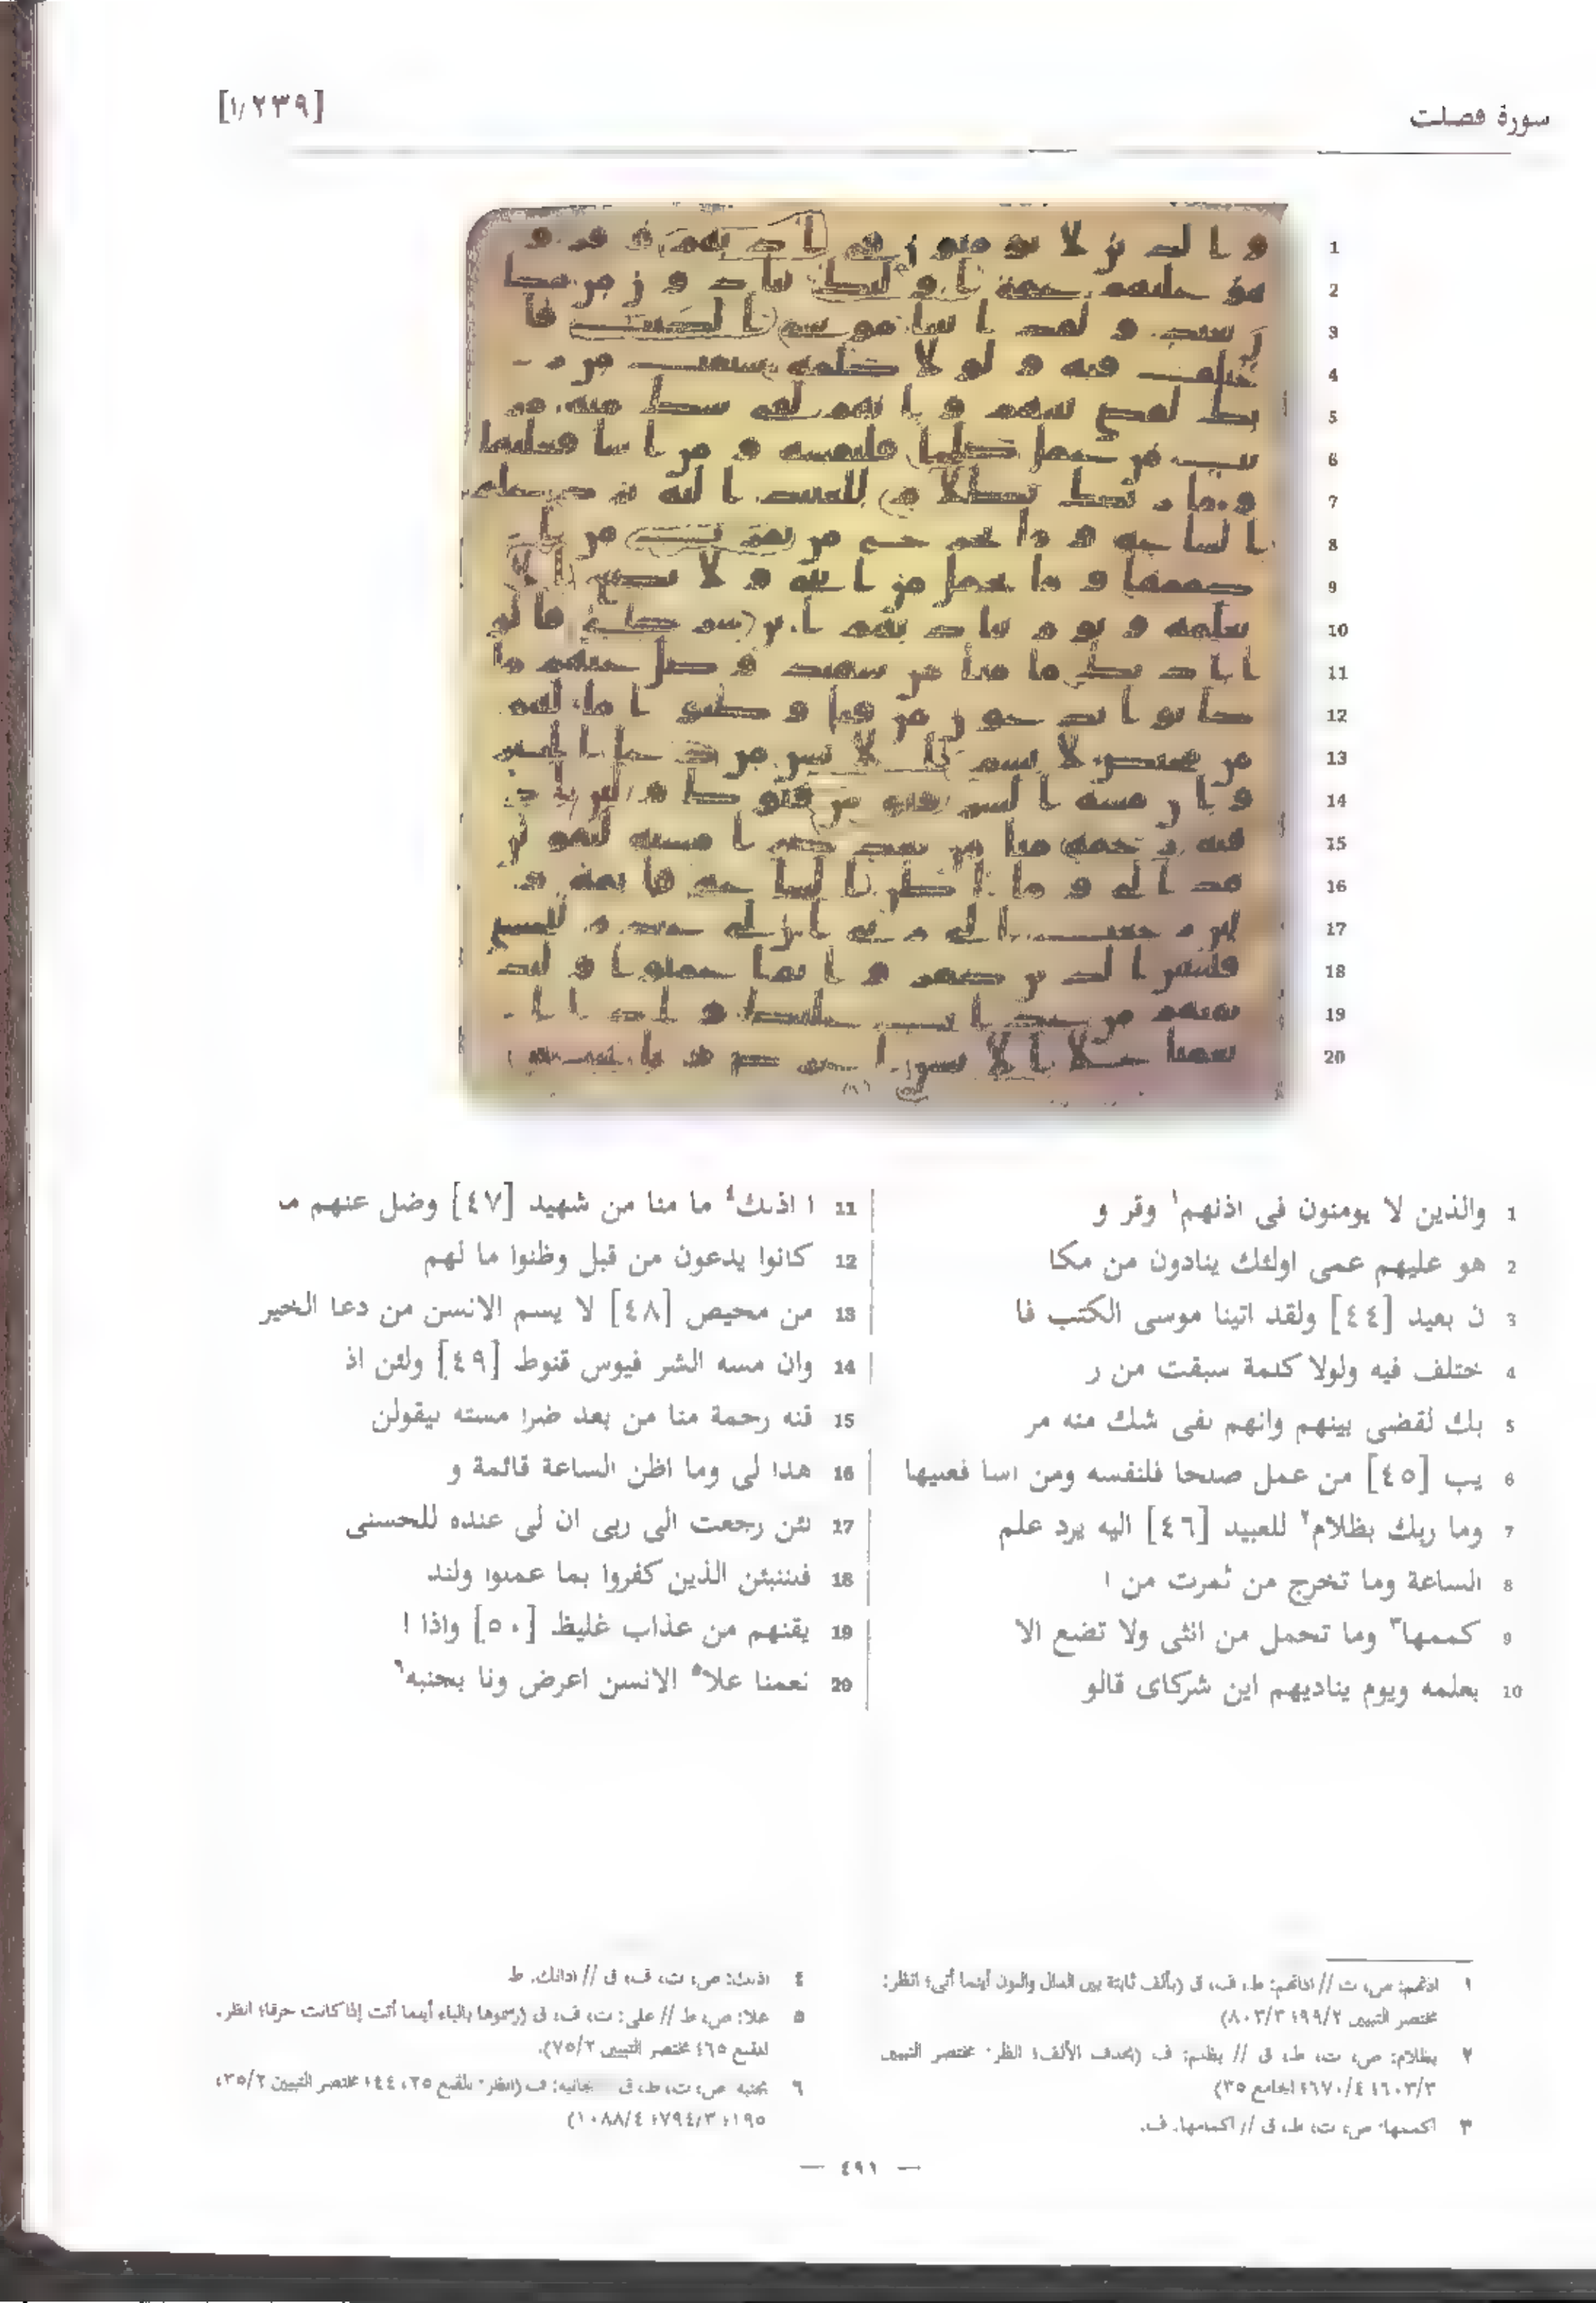 سورة فصلت
[١/٢٣٩]
1 والذين لا يومنون فى اذنهم١ وقر و
2 هو عليهم عمى اولئك ينادون من مكا
3 ن بعيد [٤٤] ولقد اتينا موسى الكتب فا
4 ختلف فيه ولولا كلمة سبقت من ر
5 بك لقضى بينهم وانهم لفى شك منه مر
6 يب [٤٥] من عمل صلحا فلنفسه ومن اسا فعليها
7 وما ربك بظلام٢ للعبيد [٤٦] اليه يرد علم
8 الساعة وما تخرج من ثمرت من ا
9 كممها٣ وما تحمل من انثى ولا تضع الا
10 بعلمه ويوم يناديهم اين شركاى قالو
11 ا اذنك٤ ما منا من شهيد [٤٧] وضل عنهم ما
12 كانوا يدعون من قبل وظنوا ما لهم
13 من محيص [٤٨] لا يسم الانسن من دعا الخير
14 وان مسه الشر فيوس قنوط [٤٩] ولئن اذ
15 قنه رحمة منا من بعد ضرا مسته ليقولن
16 هذا لى وما اظن الساعة قائمة و
17 لئن رجعت الى ربى ان لى عنده للحسنى
18 فلننبئن الذين كفروا بما عملوا ولند
19 يقنهم من عذاب غليظ [٥٠] واذا ا
20 نعمنا علا٥ الانسن اعرض ونا بجنبه٦
١ اذنهم: ص، ت // اذانهم: ط، ف، ق (بألف ثابتة بين الذال والنون أينما أتى؛ انظر:
مختصر التبيين ٩٩/٢؛ ٨٠٣/٣)
٢ بظلام: ص، ت، ط، ق // بظلم: ف (بحذف الألف؛ انظر: مختصر التبيين
٦٠٣/٣؛ ٦٧٠/٤؛ الجامع ٣٥)
٣ اكممها: ص، ت، ط، ق // اكمامها: ف.
٤ اذنك: ص، ت، ف، ق // اذانك: ط
٥ علا: ص، ط // على: ت، ف، ق (رسموها بالياء أينما أتت إذا كانت حرفا؛ انظر:
المقنع ٤٦٥ مختصر التبيين ٧٥/٢).
٦ بجنبه: ص، ت، ط، ق // بجانبه: ف (انظر: المقنع ٢٥، ٤٤؛ مختصر التبيين ٣٥/٢،
١٩٥؛ ٧٩٤/٣؛ ١٠٨٨/٤)
— ٤٩١ —